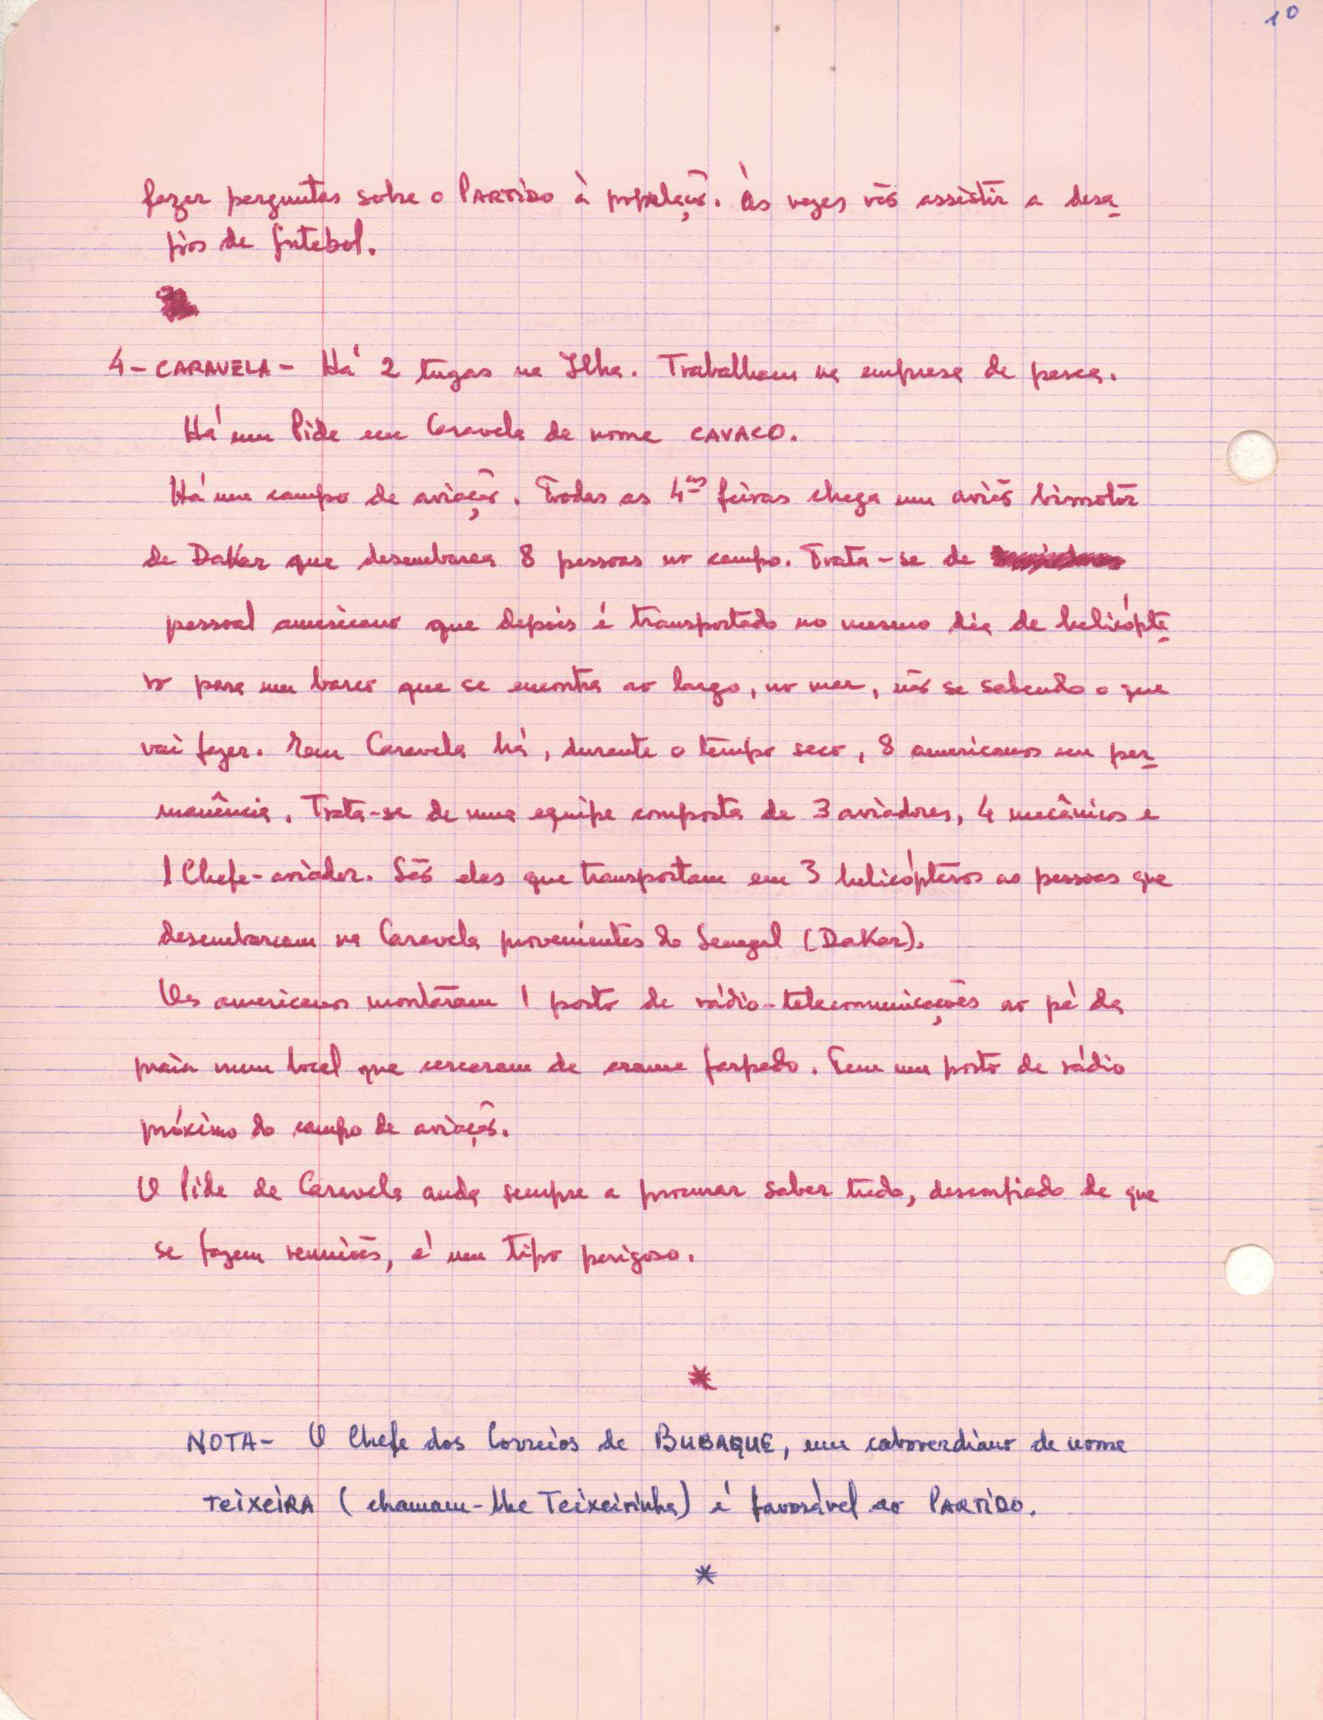 10
fazer perguntas sobre o PARTIDO à população. Às vezes vão assistir a desa-
fios de futebol.
4 - CARAVELA - Há 2 tugas na Ilha. Trabalham na empresa de pesca.
Há um Pide em Caravela de nome CAVACO.
Há um campo de aviação. Todas as 4as feiras chega um avião bimotor
de Dakar que desembarca 8 pessoas no campo. Trata-se de
pessoal americano que depois é transportado no mesmo dia de helicópte-
ro para um barco que se encontra ao largo, no mar, não se sabendo o que
vai fazer. Em Caravela há, durante o tempo seco, 8 americanos em per-
manência. Trata-se de uma equipe composta de 3 aviadores, 4 mecânicos e
1 Chefe-aviador. São eles que transportam em 3 helicópteros as pessoas que
desembarcam na Caravela provenientes do Senegal (Dakar).
Os americanos montaram 1 posto de rádio-telecomunicações ao pé da
praia num local que cercaram de arame farpado. Tem um posto de rádio
próximo do campo de aviação.
O Pide de Caravela anda sempre a procurar saber tudo, desconfiado de que
se fazem reuniões, é um tipo perigoso.
*
NOTA - O Chefe dos Correios de BUBAQUE, um caboverdiano de nome
TEIXEIRA (chamam-lhe Teixeirinha) é favorável ao PARTIDO.
*